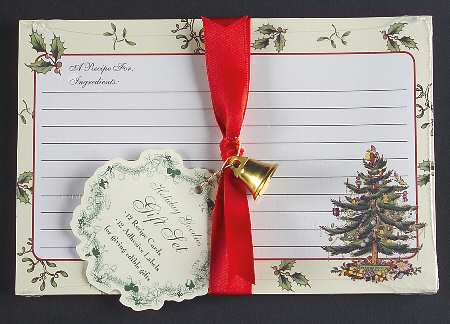 A Recipe For:
Ingredients:
Holiday
Gift Set
-12 Recipe Cards
-12 Adhesive Labels
for giving edible gifts